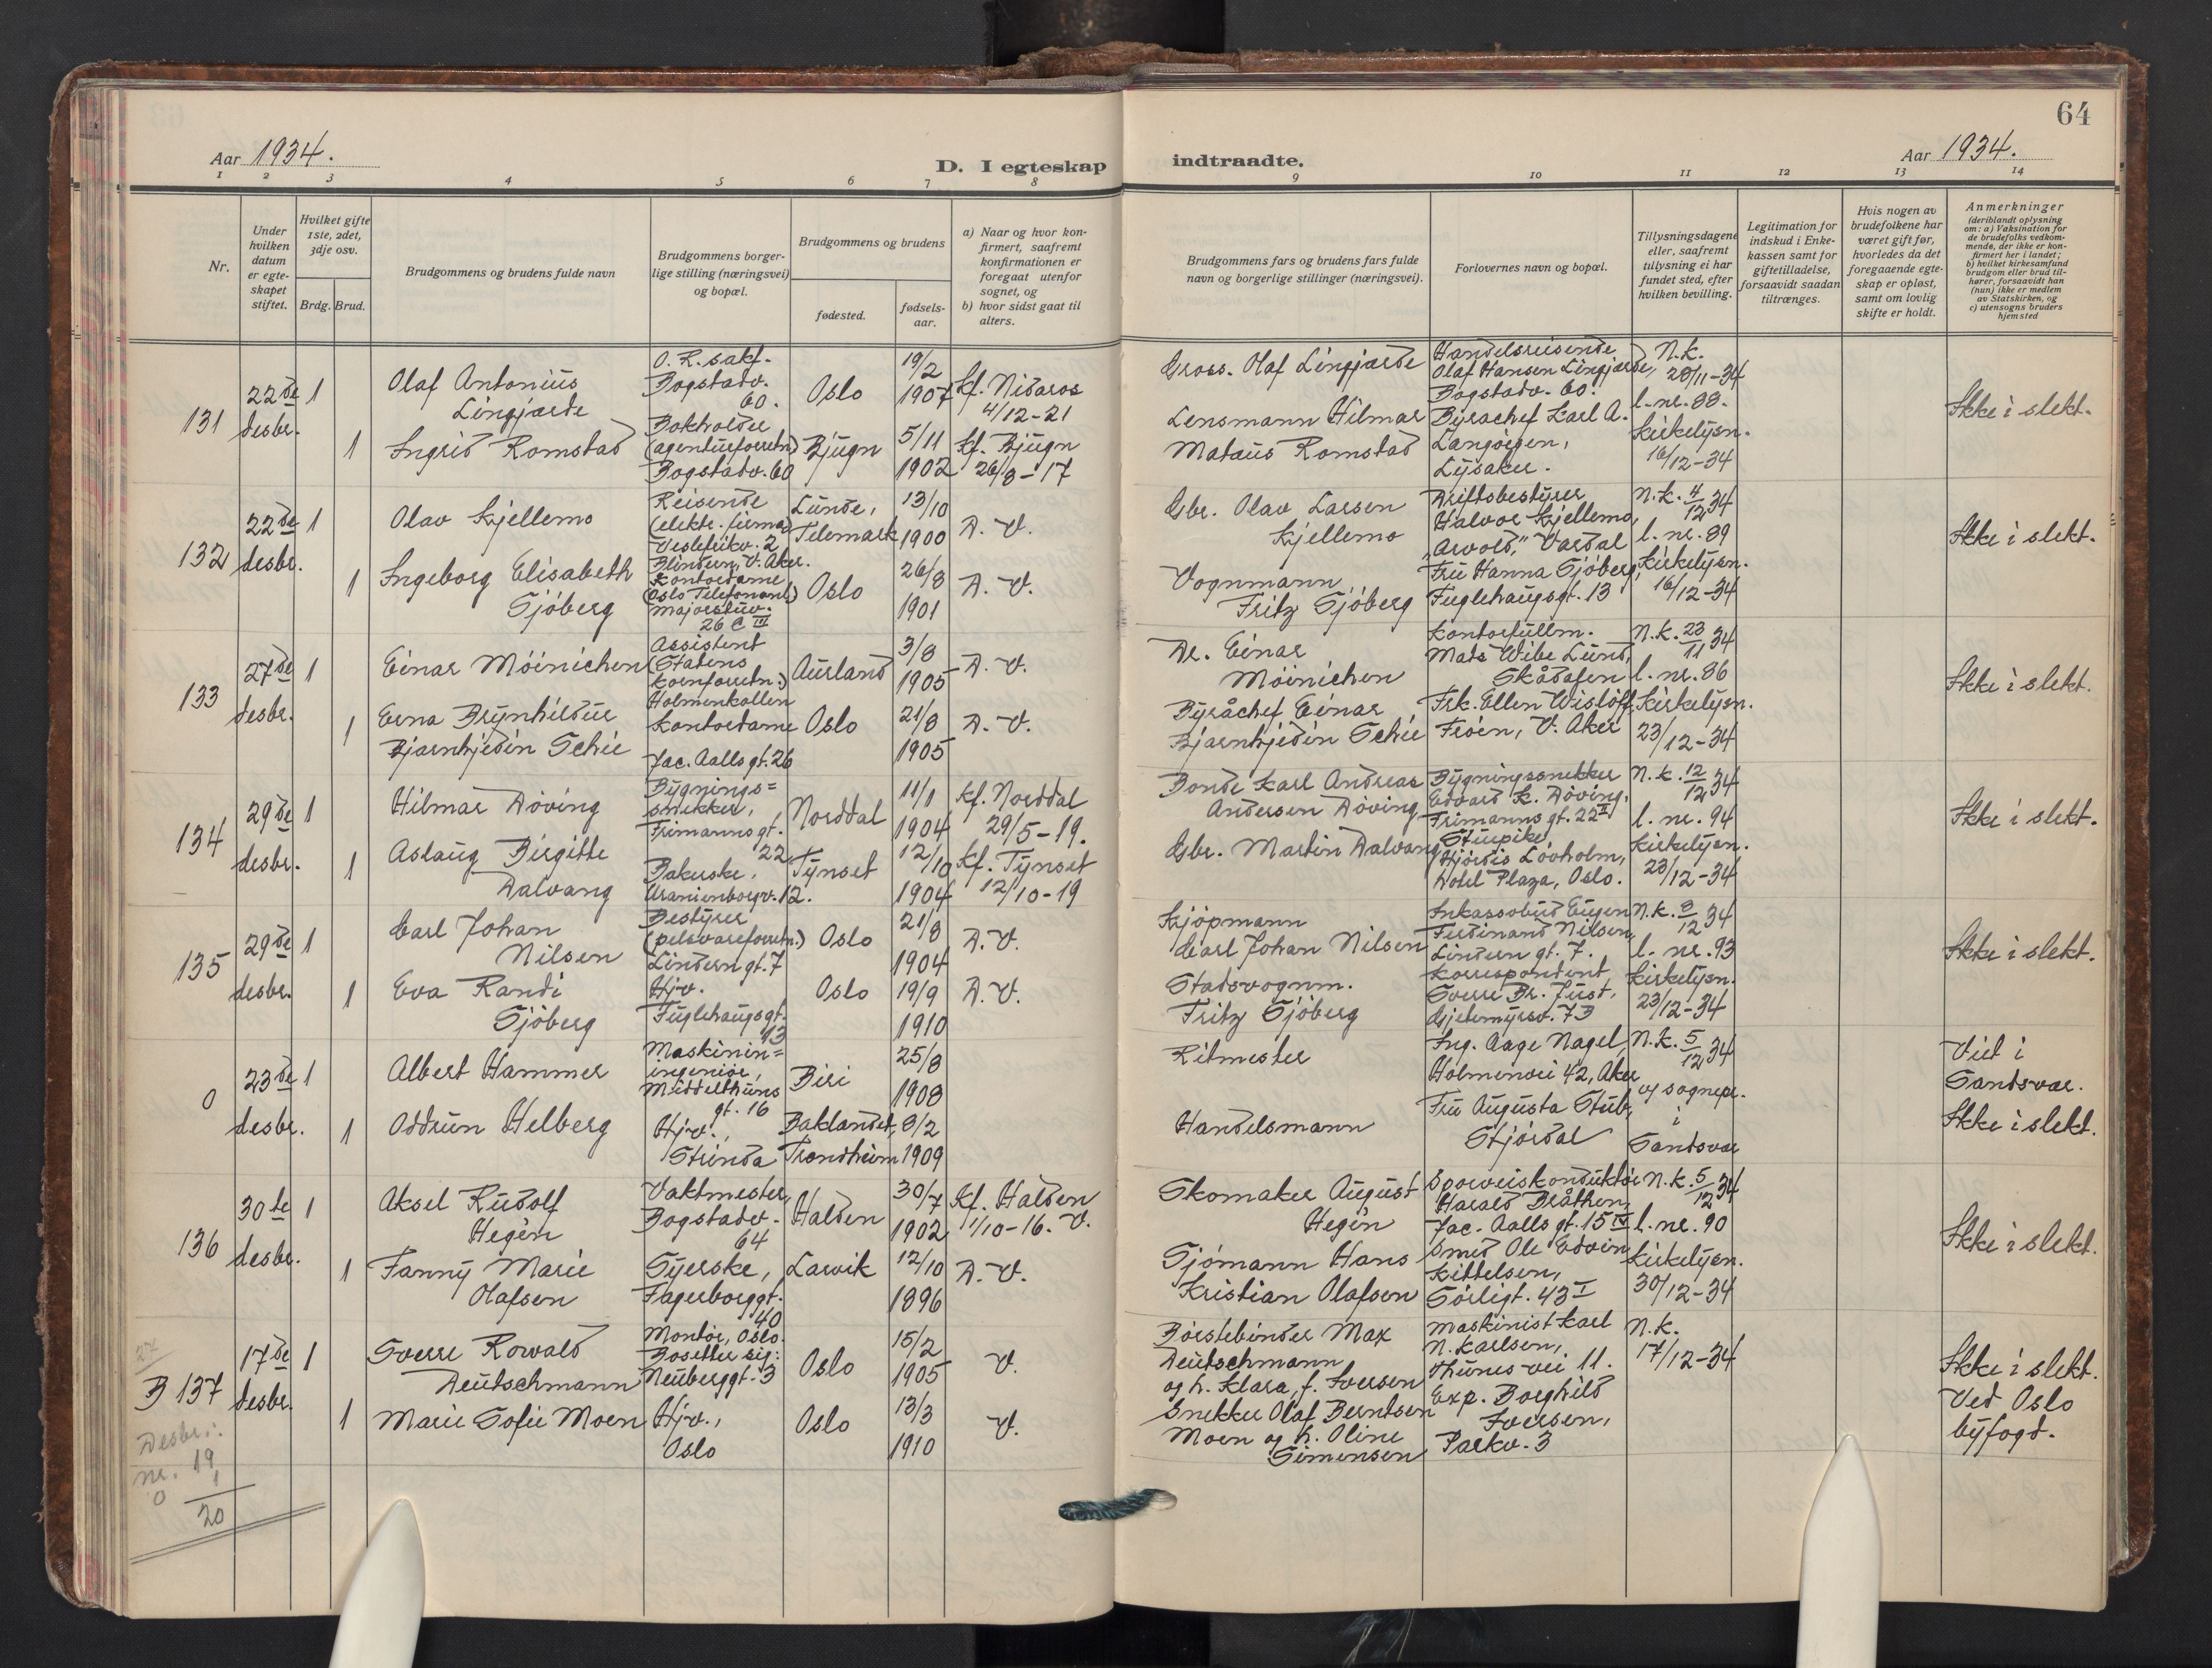 64
Aar 1934.
D. I egteskap indtraadte.
Aar 1934.
1 2 3 4 5 6 7 8 9 10 11 12 13 14
Nr.
Under hvilken datum er egte-skapet stiftet.
Hvilket gifte 1ste, 2det, 3dje osv.
Brdg. Brud.
Brudgommens og brudens fulde navn
Brudgommens borger-
lige stilling (næringsvei)
og bopæl.
Brudgommens og brudens
fødested.
fødsels-
aar.
a) Naar og hvor kon-
firmert, saafremt
konfirmationen er
foregaat utenfor
sognet, og
b) hvor sidst gaat til
alters.
Brudgommens fars og brudens fars fulde
navn og borgerlige stillinger (næringsvei).
Forlovernes navn og bopæl.
Tillysningsdagene
eller, saafremt
tillysning ei har
fundet sted, efter
hvilken bevilling.
Legitimation for
indskud i Enke-
kassen samt for
giftetilladelse,
forsaavidt saadan
tiltrænges.
Hvis nogen av
brudefolkene har
været gift før,
hvorledes da det
foregaaende egte-
skap er opløst,
samt om lovlig
skifte er holdt.
Anmerkninger
(deriblandt oplysning
om: a) Vaksination for
de brudefolks vedkom-
mende, der ikke er kon-
firmert her i landet;
b) hvilket kirkesamfund
brudgom eller brud til-
hører, forsaavidt han
(hun) ikke er medlem
av Statskirken, og
c) utensogns bruders
hjemsted
131
22de
desbr.
1
Olaf Antonius
Lingjærde
O. R. sakf.
Bogstadv.
60.
Oslo
19/2
1907
Kf. Nidaros
4/12-21
Gross. Olaf Lingjærde
Handelsreisende
Olaf Hansen Lingjærde,
Bogstadv. 60.
N.k.
28/11-34
l. nr. 88.
Ikke i slekt.
1
Ingrid Romstad
Bokholder
(agenturforretn.)
Bogstadv. 60
Bjugn
5/11
1902
Kf. Bjugn
26/8-17
Lensmann Hilmar
Mataus Romstad
Byråchef Karl A.
Langörgen,
Lysaker.
Kirkelysn.
16/12-34
132
22de
desbr.
1
Olav Kjellemo
Reisende
(elektr. firma)
Veslefrikv. 2
Blindern, V. Aker.
Lunde,
Telemark
13/10
1900
A. V.
Gbr. Olav Larsen
Kjellemo
Driftsbestyrer
Halvor Kjellemo,
"Arvold," Vardal
N.k. 4/12 34
l. nr. 89
Ikke i slekt.
1
Ingeborg Elisabeth
Sjöberg
Kontordame
(Oslo Telefonanl.)
Majorstuv.
26 C III
Oslo
26/8
1901
A. V.
Vognmann
Fritz Sjöberg
Fru Hanna Sjöberg,
Fuglehaugsgt. 13
Kirkelysn.
16/12-34
133
27de
desbr.
1
Einar Möinichen
Assistent
(Statens
kornforretn.)
Holmenkollen
Aurland
3/8
1905
A. V.
Dr. Einar
Möinichen
Kontorfullm.
Mats Wibe Lund,
Skådalen
N.k. 23/11 34
l. nr. 86
Ikke i slekt.
1
Erna Brynhildur
Bjarnhjedin Schie
Kontordame
Jac. Aallsgt. 26
Oslo
21/8
1905
A. V.
Byråchef Einar
Bjarnhjedin Schie
Frk. Ellen Wislöff,
Fröen, V. Aker
Kirkelysn.
23/12-34
134
29de
desbr.
1
Hilmar Döving
Bygnings=
snekker,
Frimannsgt.
22
Norddal
11/1
1904
Kf. Norddal
29/5-19.
Bonde Karl Andreas
Andersen Döving
Bygningssnekker
Edvard K. Döving,
Frimannsgt. 22 II
N.k. 12/12 34
l. nr. 94
Ikke i slekt.
1
Aslaug Birgitte
Dalvang
Bakerske,
Uranienborgv. 12.
Tynset
12/10
1904
Kf. Tynset
12/10-19
Gbr. Martin Dalvang
Stuepike
Hjördis Lövholm,
Hotel Plaza, Oslo.
Kirkelysn.
23/12-34
135
29de
desbr.
1
Carl Johan
Nilsen
Bestyrer
(pelsvareforretn.)
Linderngt. 7
Oslo
21/8
1904
A. V.
Kjöpmann
Carl Johan Nilsen
Inkassobud Eugen
Ferdinand Nilsen,
Linderngt. 7.
N.k. 8/12 34
l. nr. 93
Ikke i slekt.
1
Eva Randi
Sjöberg
Hjv.
Fuglehaugsgt.
13
Oslo
19/9
1910
A. V.
Stadsvognm.
Fritz Sjöberg
Korrespondent
Sverre Br. Just,
Gjetemyrsv. 73
Kirkelysn.
23/12-34
0
23de
desbr.
1
Albert Hammer
Maskinin=
ingeniör,
Middelthuns
gt. 16
Biri
25/8
1908
Ritmester
Ing. Aage Nagel,
Holmenvei 42, Aker
N.k. 5/12 34
v/ sognepr.
i
Sandsvær
Viet i
Sandsvær.
Ikke i slekt.
1
Oddrun Helberg
Hjv.,
Strinda
Baklandet,
Trondheim
8/2
1909
Handelsmann
Fru Augusta Stub,
Stjördal
136
30te
desbr.
1
Aksel Rudolf
Hegén
Vaktmester,
Bogstadv.
64
Halden
30/7
1902
Kf. Halden
1/10-16. V.
Skomaker August
Hegén
Sporveiskonduktör
Harald Bråthen,
Jac. Aallsgt. 15 IV
N.k. 5/12 34
l. nr. 90
Ikke i slekt.
1
Fanny Marie
Olafsen
Syerske,
Fagerborggt.
40
Larvik
12/10
1896
A. V.
Sjömann Hans
Kristian Olafsen
Smed Ole Edvin
Kittelsen,
Sörligt. 43 I
Kirkelysn.
30/12-34
B 137
17de
desbr.
1
Sverre Rowald
Deutschmann
Montör, Oslo.
Bosetter sig:
Neuberggt. 3
Oslo
15/2
1905
V.
Börstebinder Max
Deutschmann
og h. Klara, f. Iversen
Maskinist Karl
N. Karlsen,
Thunesvei 11.
N.k.
17/12-34
Ikke i slekt.
Ved Oslo
byfogd.
1
Marie Sofie Moen
Hjv.,
Oslo
Oslo
13/3
1910
V.
Snekker Olaf Berntsen
Moen og h. Oline
Simensen
Exp. Borghild
Iversen,
Parkv. 3
Desbr.:
nr. 19
0 1
20